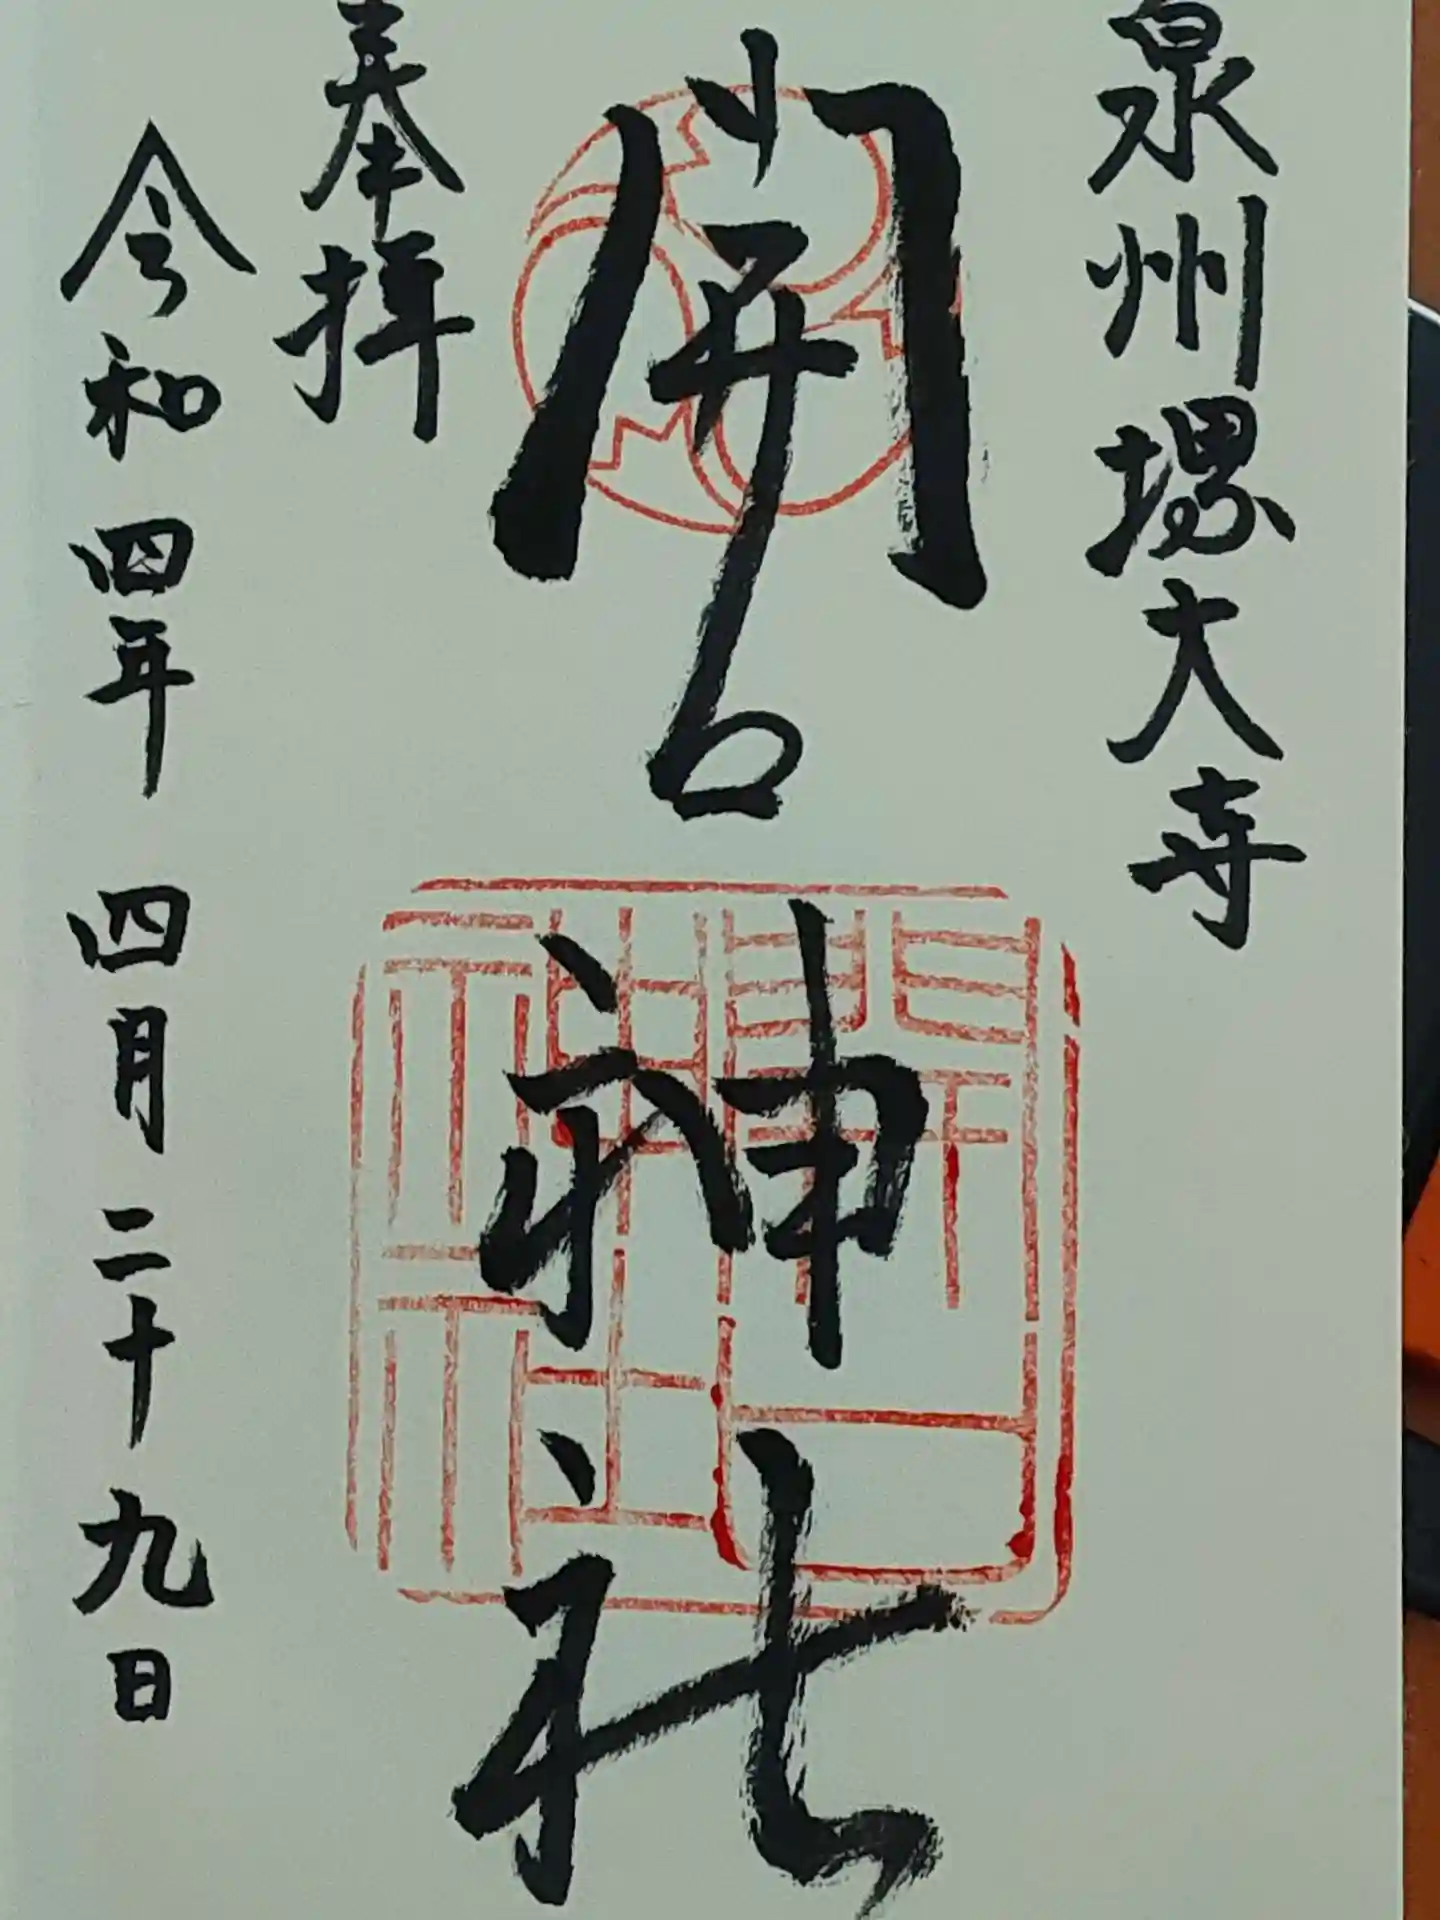 泉州堺大寺
開口神社
奉拝
令和四年四月二十九日
開口神社